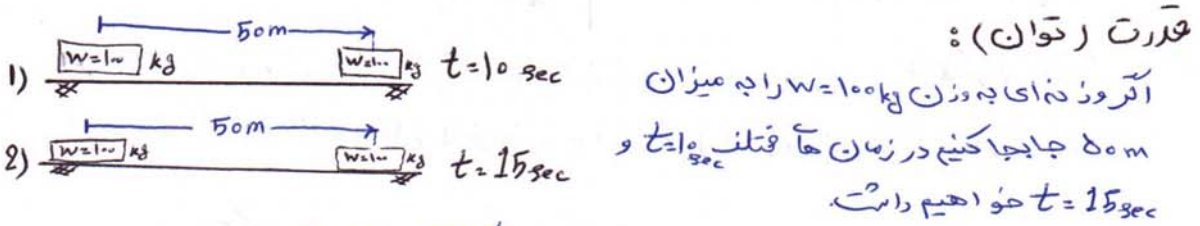 قدرت (توان):
اگر وزنه‌ای به وزن W=100kg را به میزان
50m جابجا کنیم در زمان‌های مختلف t=10sec و
t=15sec خواهیم داشت.
1) W=100 kg 50m W=100 kg t=10 sec
2) W=100 kg 50m W=100 kg t=15sec